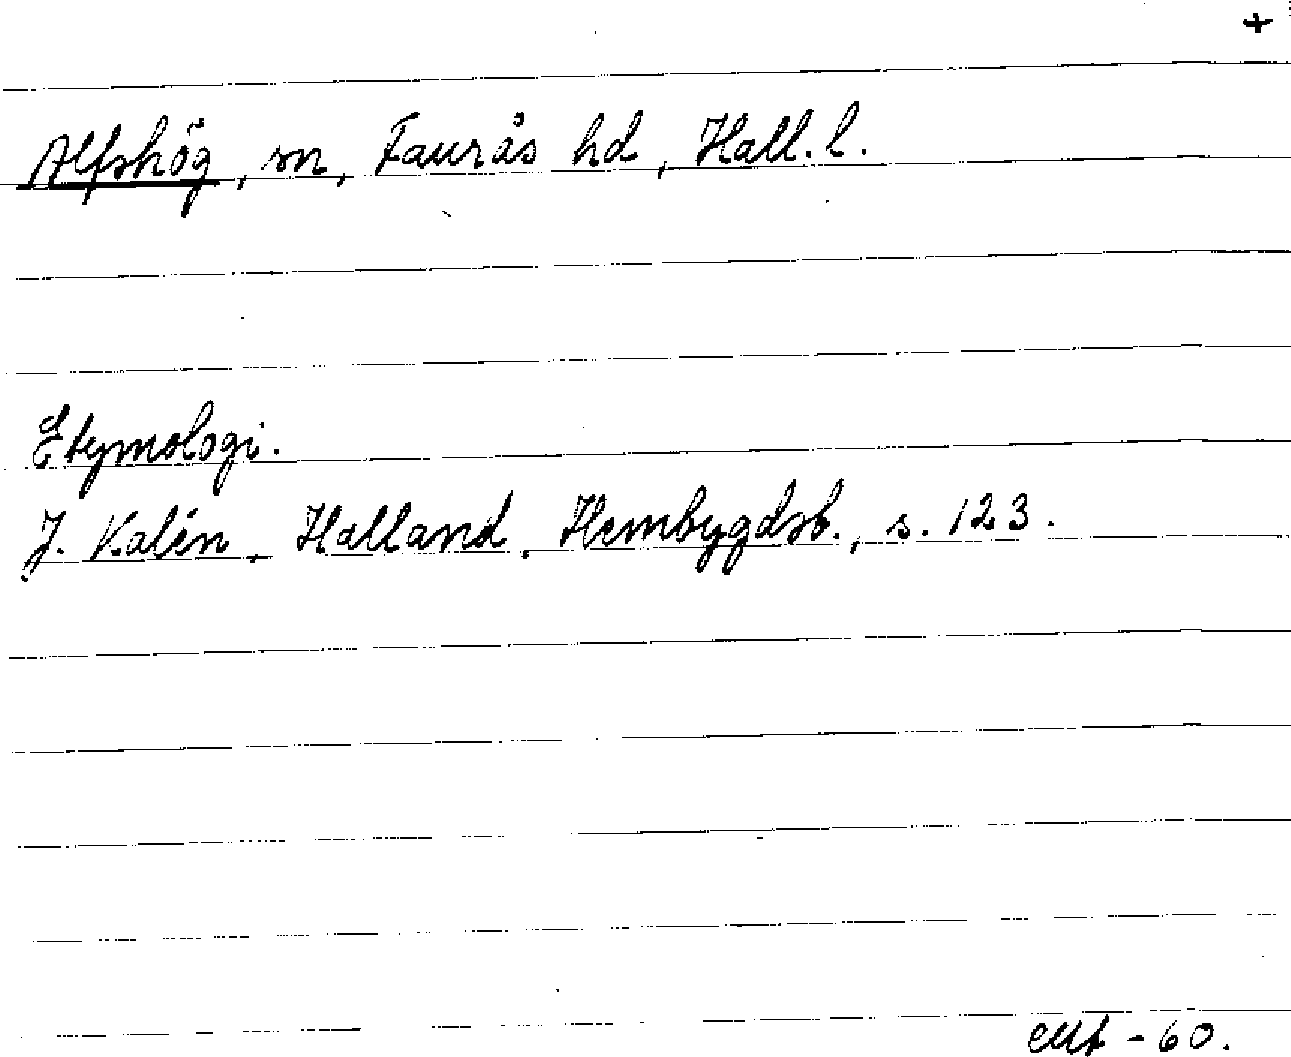 +
Alfshög, sn, Faurås hd, Hall. l.
Etymologi.
J. Kalén, Halland. Hembygdsb., s. 123.
-60.